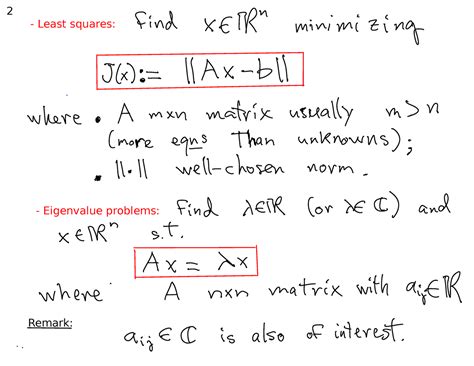 2
- Least squares: Find x∈ℝⁿ minimizing
J(x):= ||Ax-b||
where • A mxn matrix usually m>n
(more eqns Than unknowns);
• ||·|| well-chosen norm.
- Eigenvalue problems: Find λ∈ℝ (or λ∈ℂ) and
x∈ℝⁿ s.t.
Ax = λx
where A nxn matrix with aᵢⱼ∈ℝ
Remark:
aᵢⱼ∈ℂ is also of interest.